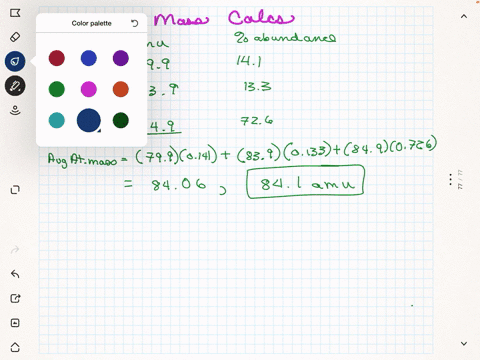 Color palette
Mass Calcs
mu % abundance
9.9 14.1
3.9 13.3
4.9 72.6
Avg At. mass = (79.9)(0.141) + (83.9)(0.133) + (84.9)(0.726)
= 84.06, 84.1 amu